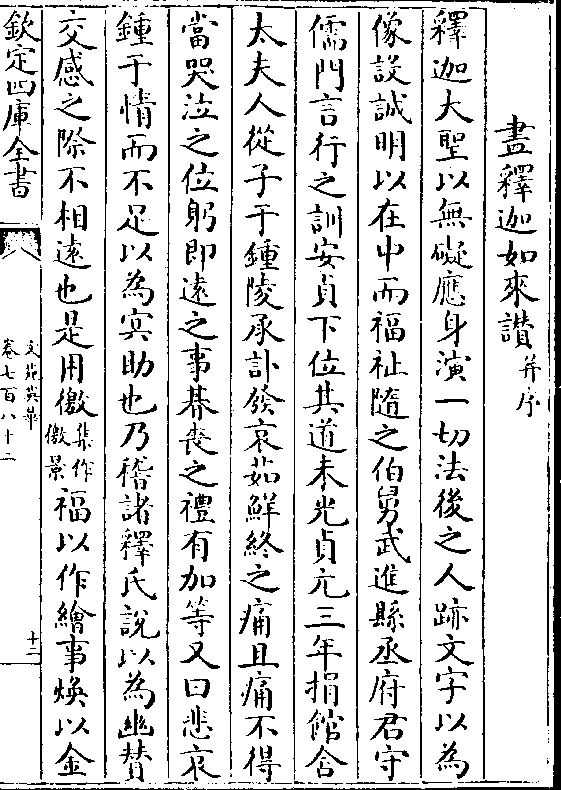 畫釋迦如來讃并序
釋迦大聖以無礙應身演一切法後之人跡文字以為
像設誠明以在中而福祉隨之伯舅武進縣丞府君守
儒門言行之訓安貞下位其道未光貞元三年捐館舍
太夫人從子于鍾陵承訃發哀茹鮮終之痛且痛不得
當哭泣之位躬即遠之事朞喪之禮有加等又曰悲哀
鍾于情而不足以為㝠助也乃稽諸釋氏說以為幽賛
交感之際不相遠也是用徼集作徼景福以作繪事煥以金
欽定四庫全書
文苑英華
卷七百八十二
十二